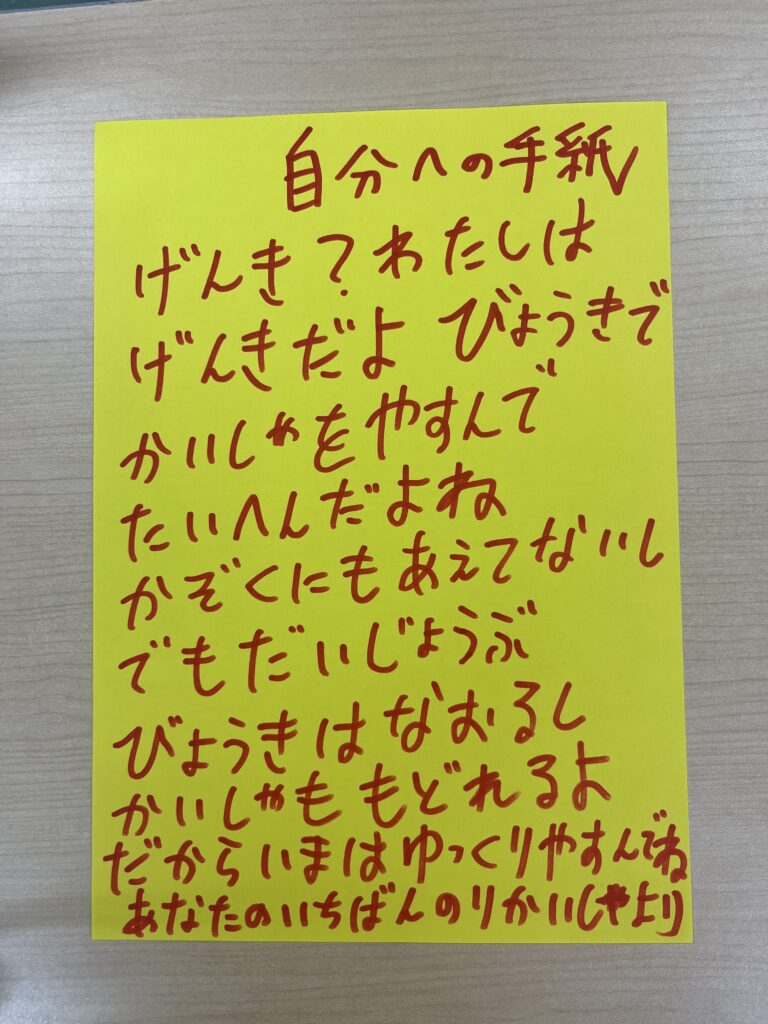 自分への手紙
げんき?わたしは
げんきだよ びょうきで
かいしゃをやすんで
たいへんだよね
かぞくにもあえてないし
でもだいじょうぶ
びょうきはなおるし
かいしゃももどれるよ
だからいまはゆっくりやすんでね
あなたのいちばんのりかいしゃより